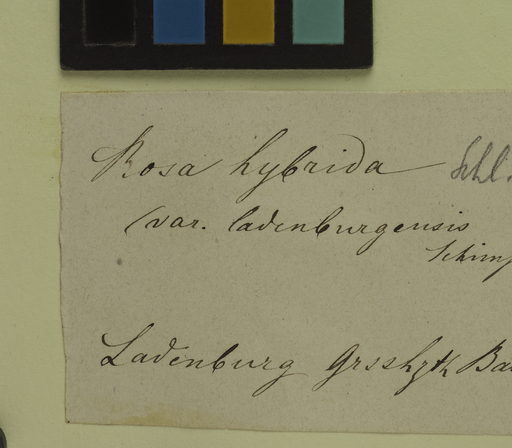 Rosa hybrida Schl.
(var. ladenburgensis
Schimp
Ladenburg Grsshzth Ba